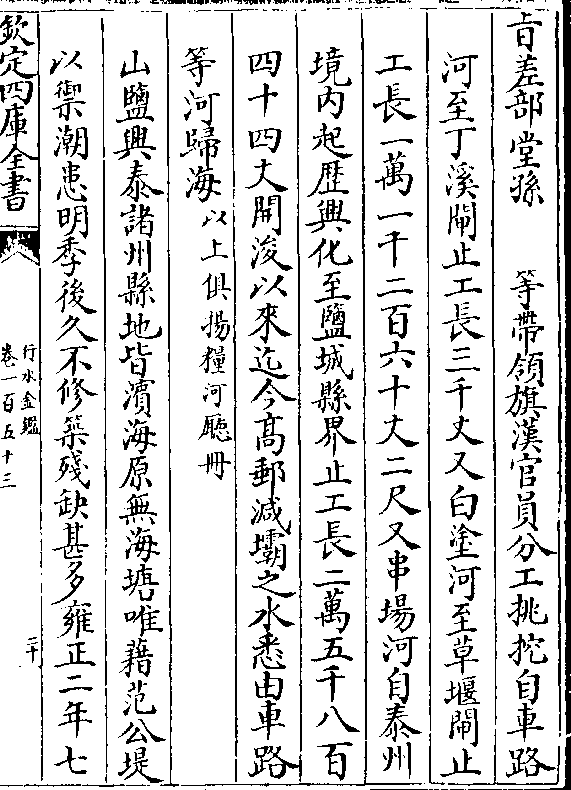 旨差部堂孫　等帶領旗漢官員分工挑挖自車路
河至丁溪閘止工長三千丈又白塗河至草堰閘止
工長一萬一千二百六十丈二尺又串場河自泰州
境内起歴興化至鹽城縣界止工長二萬五千八百
四十四丈開浚以來迄今髙郵減壩之水悉由車路
等河歸海以上俱揚糧河廳冊
山鹽興泰諸州縣地皆濱海原無海塘唯藉范公堤
以禦潮患明季後久不修築殘缺甚多雍正二年七
欽定四庫全書
行水金鑑
卷一百五十三
二十